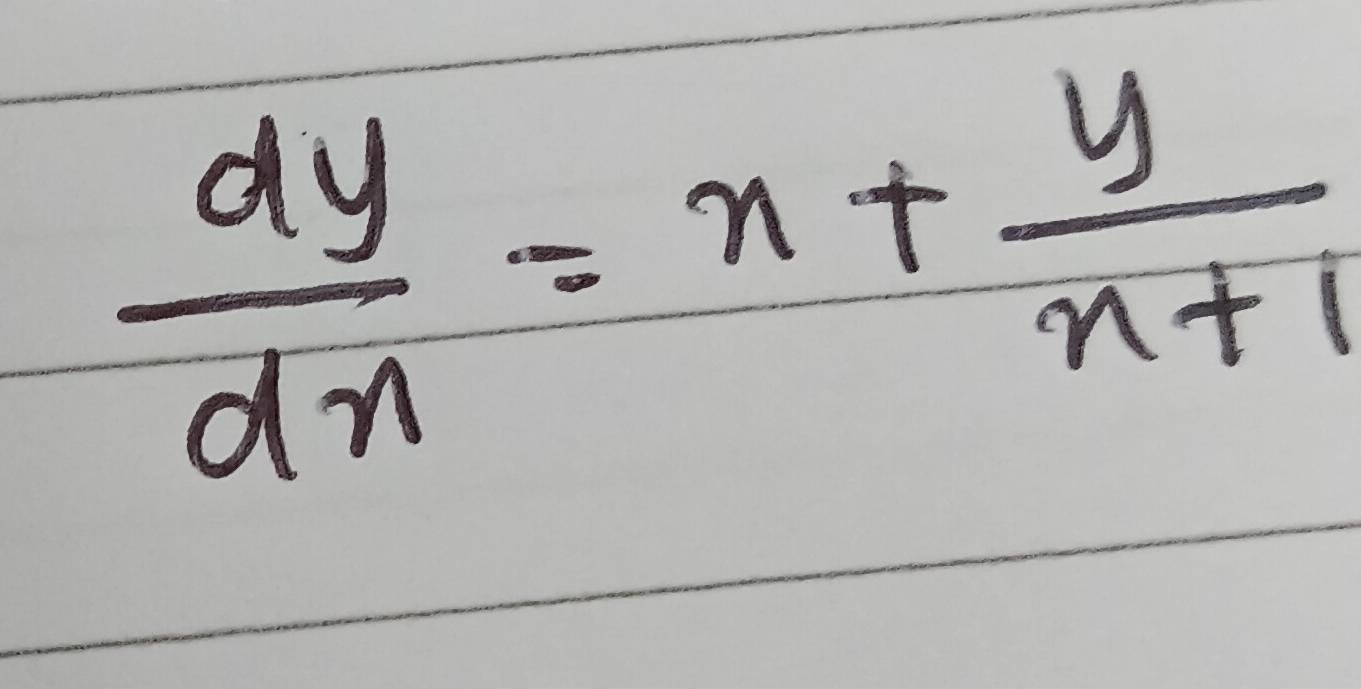 dy/dx = x + y/(x+1)